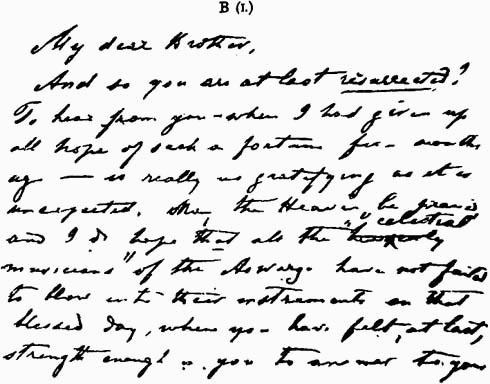 B (I.)
My dear Brother,
And so you are at last resurrected!
To hear from you — when I had given up
all hope of such a fortune few months
ago — is really as gratifying as it is
unexpected. the Heaven be praised
"celestial
and I do hope that all the heavenly
musicians" of the have not failed
to blow into their instruments on that
blessed day, when you have felt, at last,
strength enough in you to answer to your